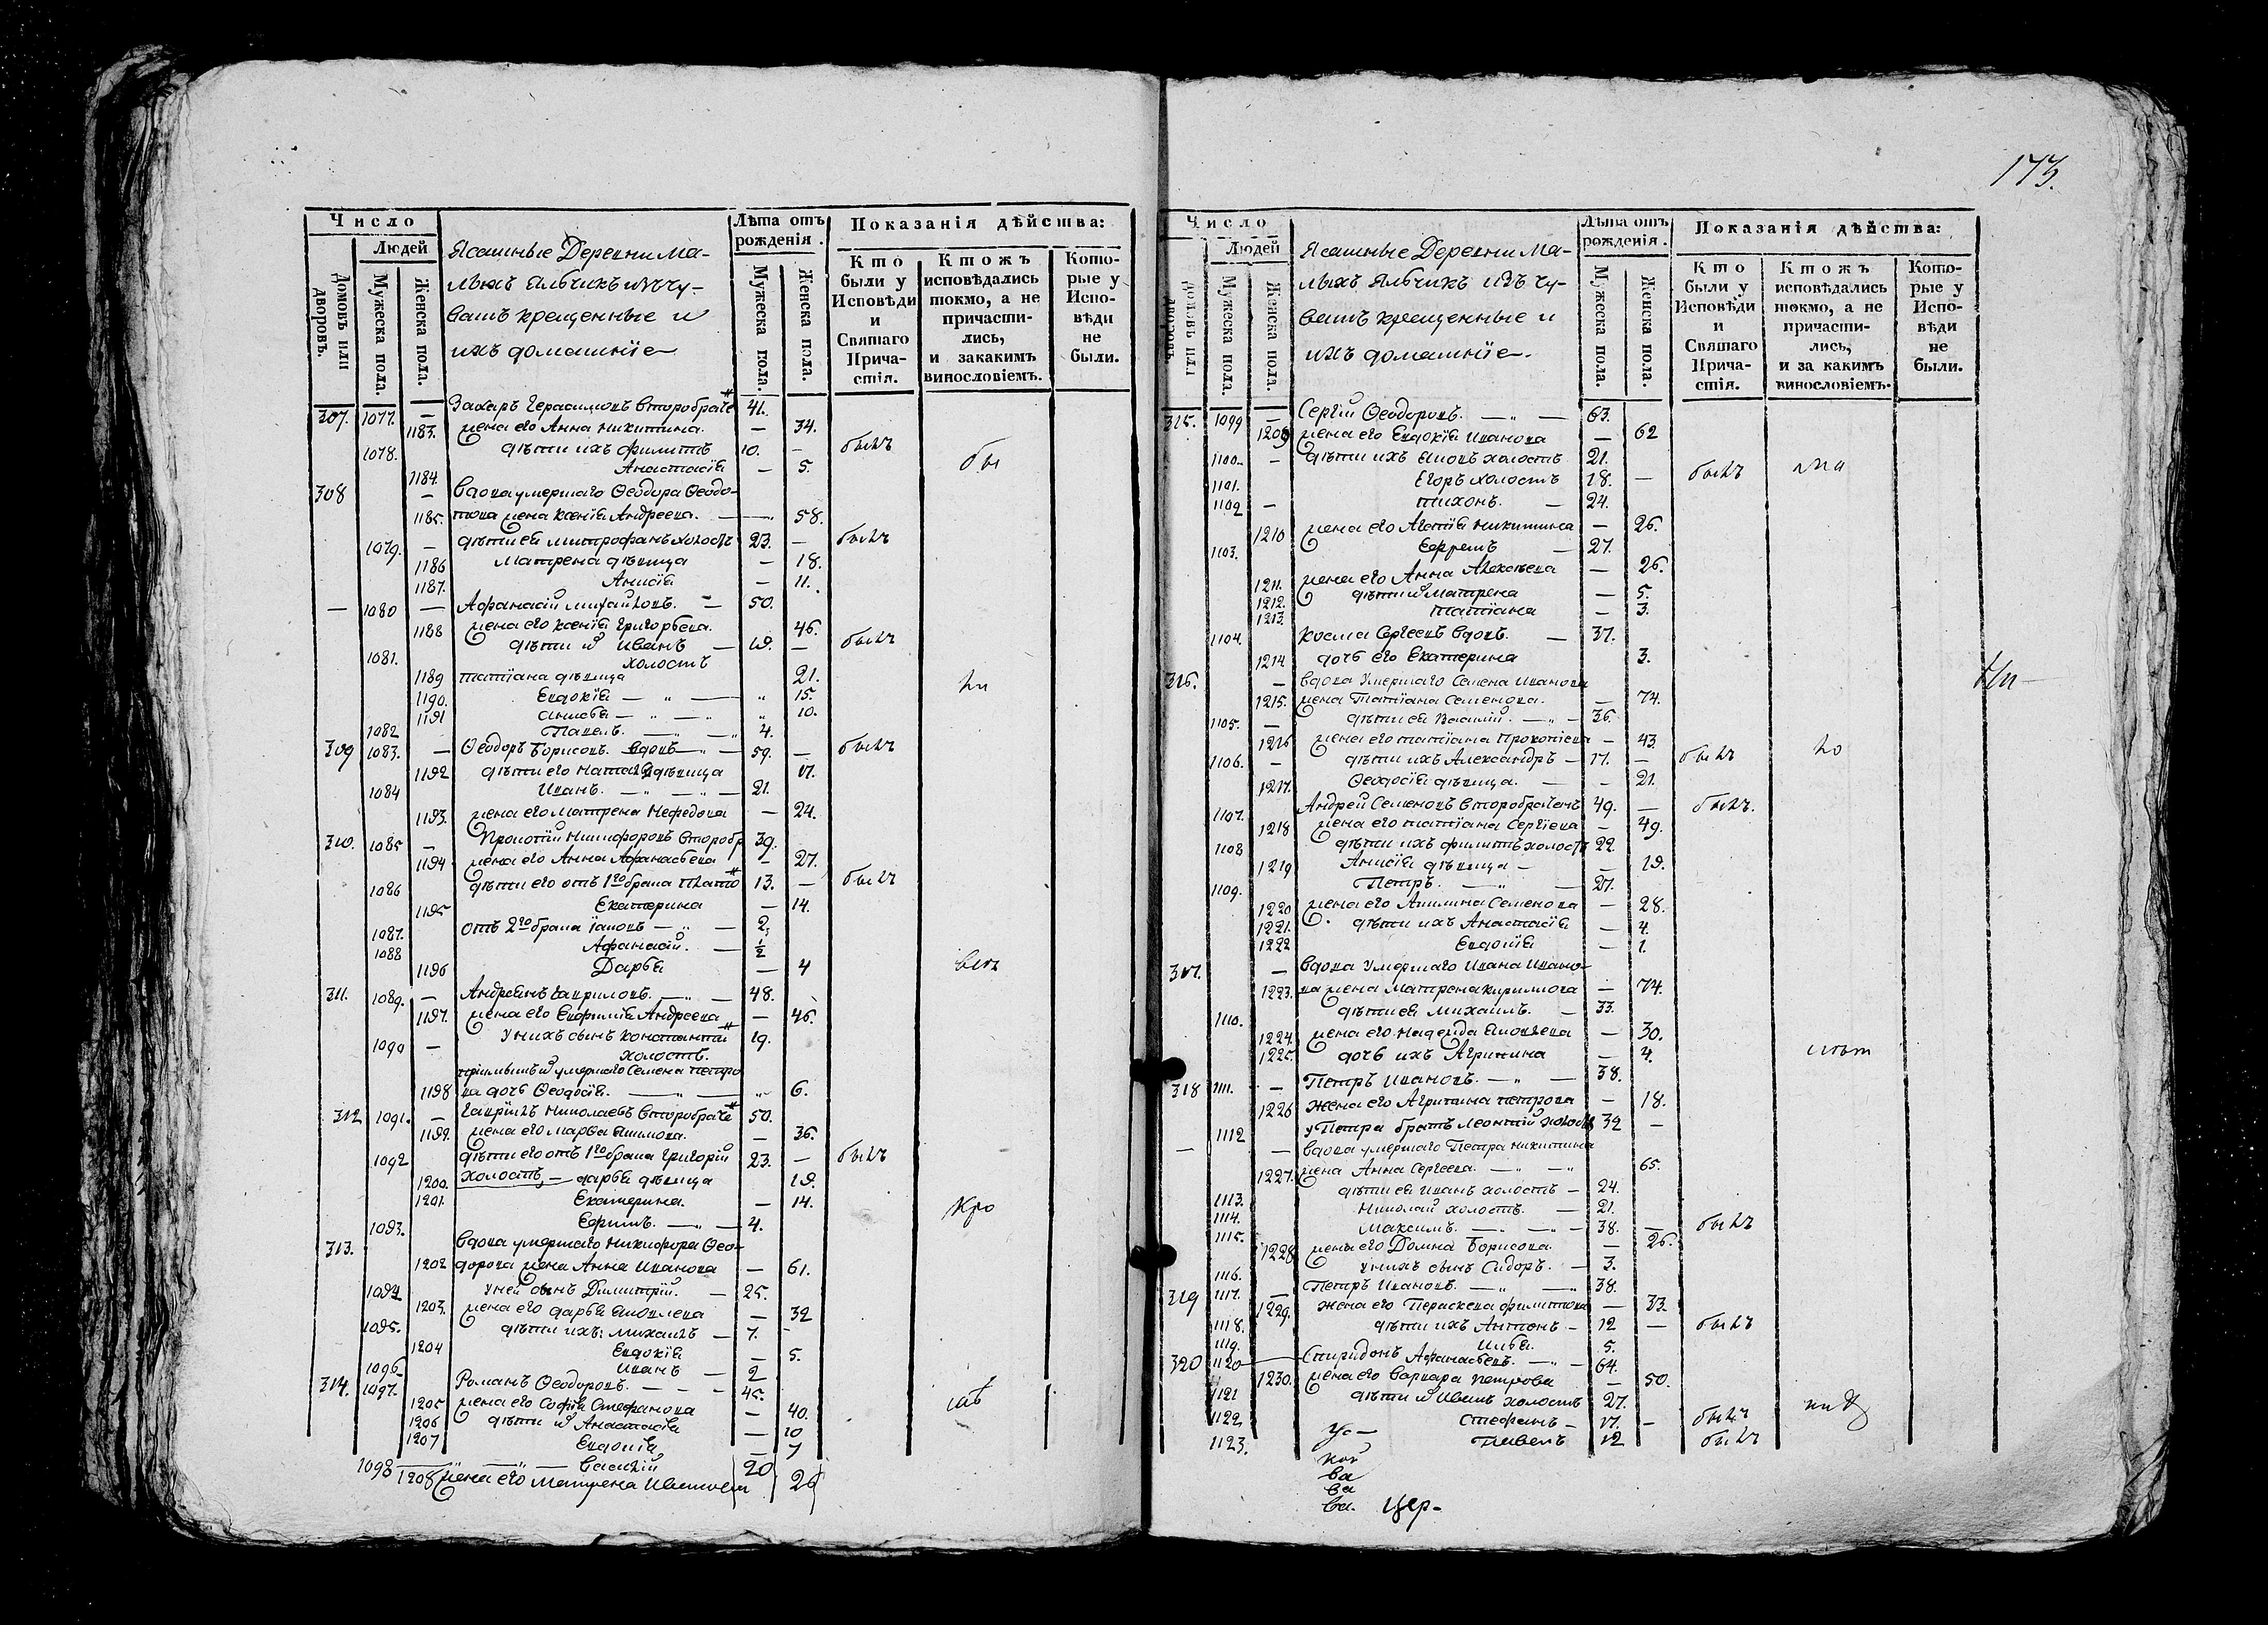 173.
Число
Людей
Домовъ или дворовъ.
Мужеска пола.
Женска пола.
Ясашные Деревни Ма-
лыхъ Яльчикъ изъ чу-
вашъ крещенные и
ихъ домашніе
Лѣта отъ рожденія.
Мужеска пола.
Женска пола.
Показанія дѣйства:
Кто были у Исповѣди и Святаго Причастія.
Ктожъ исповѣдались токмо, а не причастились, и закакимъ винословіемъ.
Которые у Исповѣди не были.
307. 1077. — Захаръ Герасимовъ второбраче 41.
1183. жена его Анна Никитина. — 34.
1078. дѣти ихъ Филиппъ 10. — былъ
1184. Анастасія — 5.
308 — вдова умершаго Ѳеодора Ѳеодо-
1185. това жена Ксенія Андреева. — 58.
1079. — дѣти ея Митрофанъ холостъ 23. — былъ
1186 Матрена дѣвица — 18.
1187. Анисія — 11.
— 1080 — Афанасій Михайловъ. — 50.
1188 жена его Ксенія Григорьева. 46.
1081. дѣти Иванъ — 19. — былъ
холостъ
1189 Татіана дѣвица 21.
1190. Евдокія — " — " 15.
1191 — " — " 10.
1082 Павелъ. — " 4.
309 1083. — Ѳеодоръ Борисовъ. вдовъ — " — 59. — былъ
1192 дѣти его Наталія дѣвица 17.
1084 Иванъ. — " — " — 21.
1193. жена его Матрена Нефедова — 24.
310. 1085 — Никифоровъ второбр 39.
1194 жена его Анна Афанасьева — 27.
1086 дѣти его отъ 1го брака Плато 13. — былъ
1195 Екатерина — 14.
1087. отъ 2го брака Іаковъ — " — 2.
1088 Афанасій. — ½
1196 Дарья — 4
311. 1089. — Андреянъ Гавриловъ. — " — 48.
1197. жена его Евфимія Андреева — 46.
1090 — у нихъ сынъ Константи 19.
холостъ.
умершаго Семена Петро
1198 ва дочь Ѳеодосія. — " — " 6.
312 1091. — Гавріилъ Николаевъ второбраче 50.
1199. жена его Марѳа — 36.
1092 дѣти его отъ 1го брака Григорій 23. — былъ
1200. холостъ, — Дарья дѣвица 19.
1201. Екатерина. — 14.
1093. Ефимъ. — " — 4.
313. вдова умершаго Никифора Ѳео-
1202 дорова жена Анна Иванова — 61.
1094 у ней сынъ Димитрій. — 25.
1203. жена его Дарья Яковлева — 32
1095. дѣти ихъ: Михаилъ — 7. -
1204 Евдокія — 5.
1096 Иванъ — 2
314. 1097. Романъ Ѳеодоровъ. — - - 45.
1205 жена его Софія Стефанова — 40.
1206 дѣти Анастасія — 10
1207 Евдокія — 7
1098 — " — Василій 20
1208 жена его Матрена 26
Число
Людей
Домовъ или дворовъ.
Мужеска пола
Женска пола.
Ясашные Деревни Ма-
лыхъ Яльчикъ изъ чу-
вашъ крещенные и
ихъ домашніе.
Лѣта отъ рожденія.
Мужеска пола.
Женска пола.
Показанія дѣйства:
Кто были у Исповѣди и Святаго Причастія.
Ктожъ исповѣдались токмо, а не причастились, и за какимъ винословіемъ.
Которые у Исповѣди не были.
315. 1099 — Сергій Ѳеодоровъ. — " — 63.
1209 жена его Евдокія Иванова — 62
1100 — дѣти ихъ Яковъ холостъ 21. былъ
1101. Егоръ холостъ 18. —
1102 — Тихонъ. — 24.
1210 жена его Агапія Никитина — 26.
1103. Ефремъ — 27.
1211. жена его Анна Алексѣева — 26.
1212. дѣти Матрена — 5.
1213. Татіана — 3.
1104. Косма Сергеевъ вдовъ. — 37.
1214 дочь его Екатерина 3.
316. — вдова умершаго Семена Иванова
1215. жена Татіана Семенова. — 74.
1105. — дѣти ея Василій. — " — 36.
1216 жена его Татіана Прокопіева — 43.
1106. — дѣти ихъ Александръ — 17. — былъ
1217. Ѳеодосія дѣвица. — - 21.
1107. Андрей Семеновъ второбраченъ 49. — былъ.
1218 жена его Татіана Сергіева — 49.
1108 дѣти ихъ Филиппъ холостъ 22.
1219 Анисія дѣвица — — 19.
1109. Петръ. — " — 27.
1220 жена его Акилина Семенова — 28.
1221. дѣти ихъ Анастасія — 4.
1222 Евдокія — 1.
317. — вдова умершаго Ивана Ивано-
1223. ва жена Матрена Кирилова — 74.
1110. дѣти ея Михаилъ. — 33.
1224. жена его Надежда Яковлева — 30.
1225. дочь ихъ Агрипина — 4.
318 1111. — Петръ Ивановъ. — " — 38.
1226 жена его Агрипина Петрова — 18.
1112 у Петра братъ Леонтій холостъ 32 —
— — вдова умершаго Петра Никитина
1227. жена Анна Сергеева. — " — " 65.
1113. дѣти ея Иванъ холостъ — 24.
1114. Николай холостъ. — 21.
1115. Максимъ. — " — " — 38. — былъ
1228 жена его Домна Борисова. — 26.
1116. у нихъ сынъ Сидоръ. — 3.
319 1117. — Петръ Ивановъ. — " — 38.
1229. жена его Перасковa Филипова — 33.
1118. дѣти ихъ Антонъ — 12 — былъ
1119. Илья. 5.
320 1120 — Спиридонъ Афанасьевъ. — " — 64.
1230. жена его Варвара Петрова — 50.
1121 дѣти Иванъ холостъ 27.
1122 Стефанъ — 17. - былъ
1123. Павелъ 12 былъ
цер-